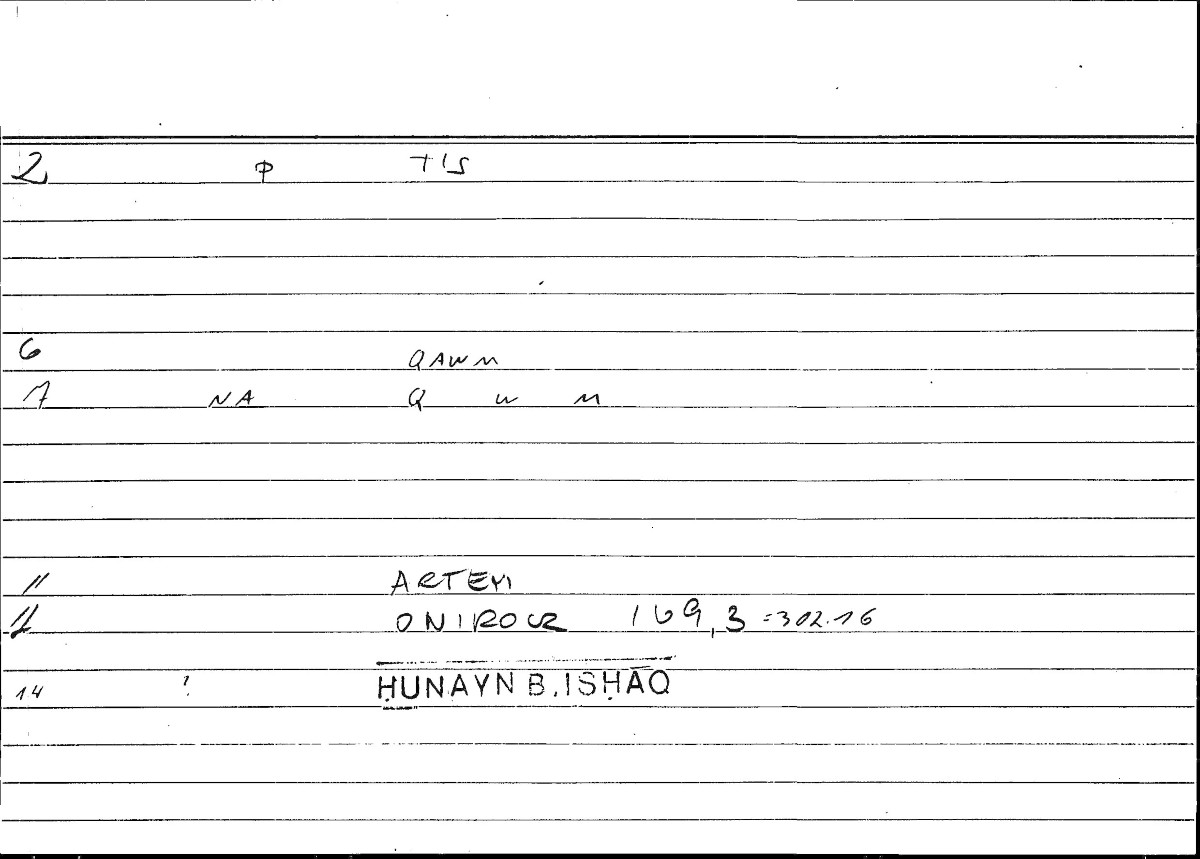 2 φ TIS
6 QAWM
7 NA Q W M
11 ARTEM
ONIROCR 169,3 =302.16
14 ? ḤUNAYN B. ISḤĀQ